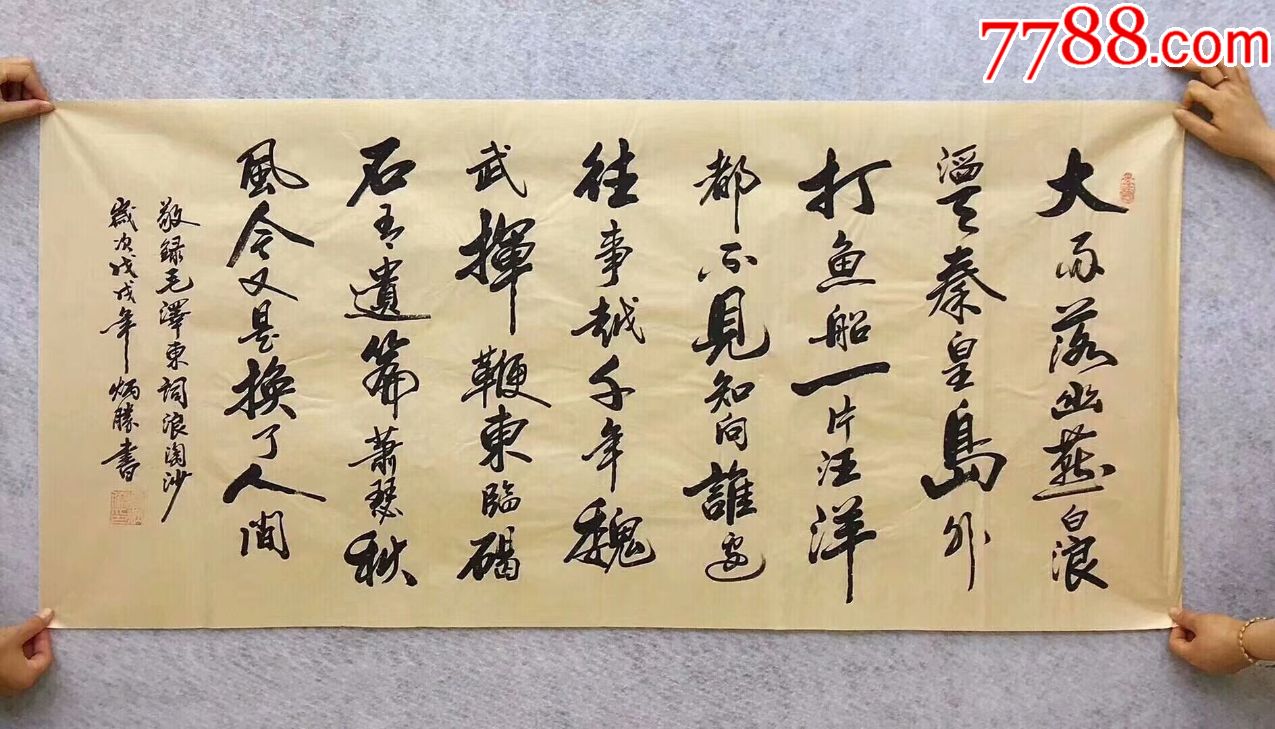 7788.com
大雨落幽燕白浪
滔天秦皇島外
打魚船一片汪洋
都不見知向誰邊
往事越千年魏
武揮鞭東臨碣
石有遺篇蕭瑟秋
風今又是換了人間
敬録毛澤東詞浪淘沙
歲次戊戌年炳勝書